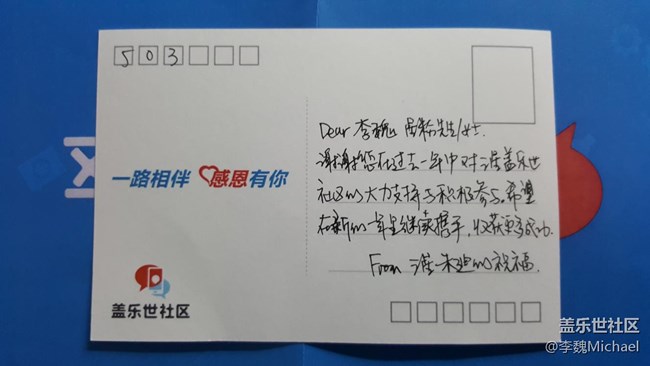 503
Dear 李魏 盖粉先生/女士.
谢谢您在过去一年中对淮盖乐世
社区的大力支持与积极参与。希望
在新的一年里继续携手，收获更多成功.
From 淮 的祝福.
一路相伴 感恩有你
盖乐世社区
盖乐世社区
@李魏Michael